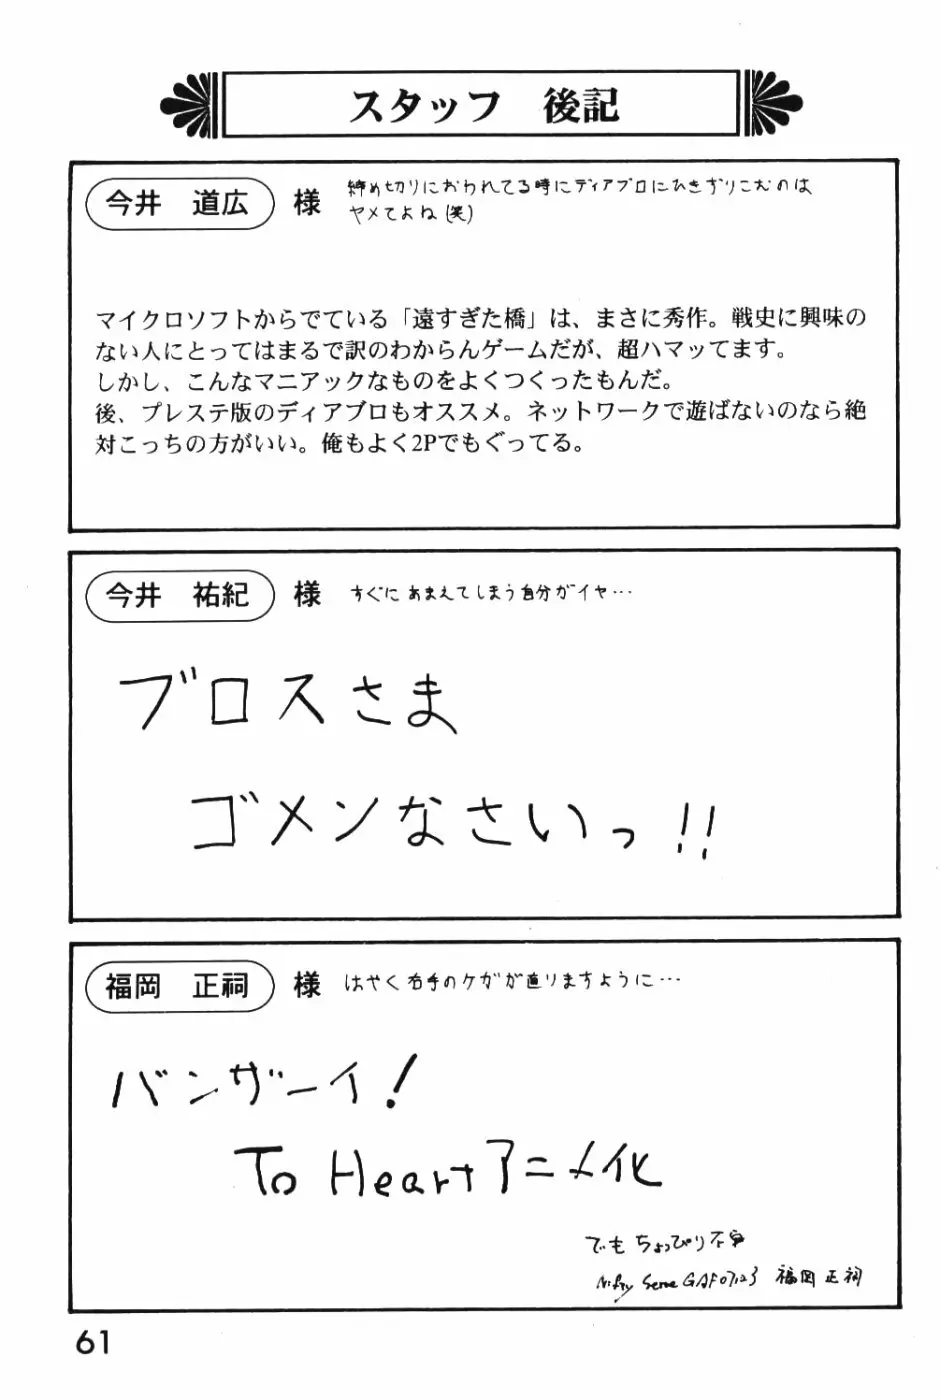 スタッフ 後記
今井 道広 様 締め切りにおわれてる時にディアブロにひきずりこむのは
ヤメてよね(笑)
マイクロソフトからでている「遠すぎた橋」は、まさに秀作。戦史に興味の
ない人にとってはまるで訳のわからんゲームだが、超ハマッてます。
しかし、こんなマニアックなものをよくつくったもんだ。
後、プレステ版のディアブロもオススメ。ネットワークで遊ばないのなら絶
対こっちの方がいい。俺もよく2Pでもぐってる。
今井 祐紀 様 すぐにあまえてしまう自分がイヤ…
ブロスさま
ゴメンなさいっ!!
福岡 正祠 様 はやく右手のケガが直りますように…
バンザーイ!
To Heartアニメ化
でもちょっぴり不安
Nifty Serve 福岡 正祠
61